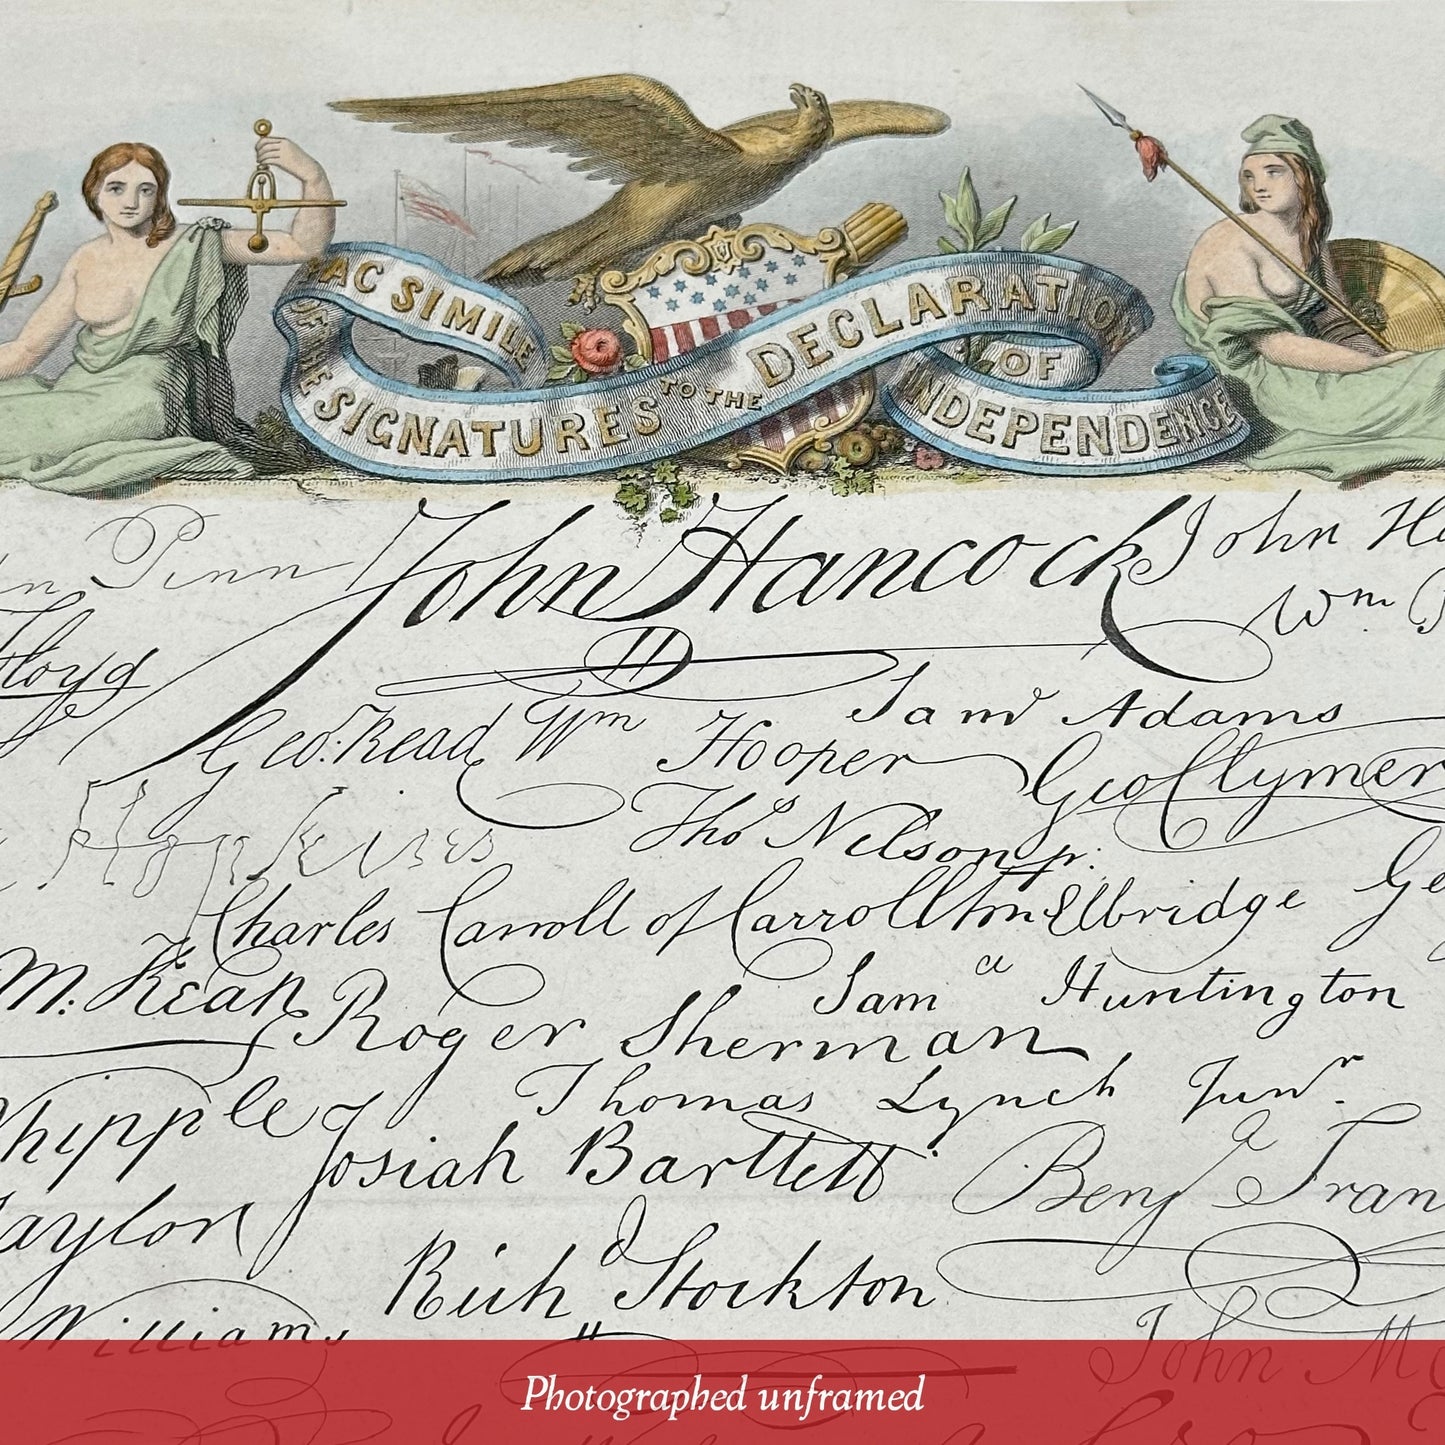 FAC SIMILE
OF THE SIGNATURES TO THE DECLARATION
OF
INDEPENDENCE
John Hancock
Penn
John
Wm
Floyd
Sam Adams
Geo: Read
Wm Hooper
Geo Clymer
Hopkins
Thos Nelson jr.
Charles Carroll of Carrollton
Elbridge Ge
M: Kean
Saml Huntington
Roger Sherman
Thomas Lynch Junr.
Whipple
Josiah Bartlett
Benja Fran
Taylor
Richd Stockton
Williams
John
Photographed unframed